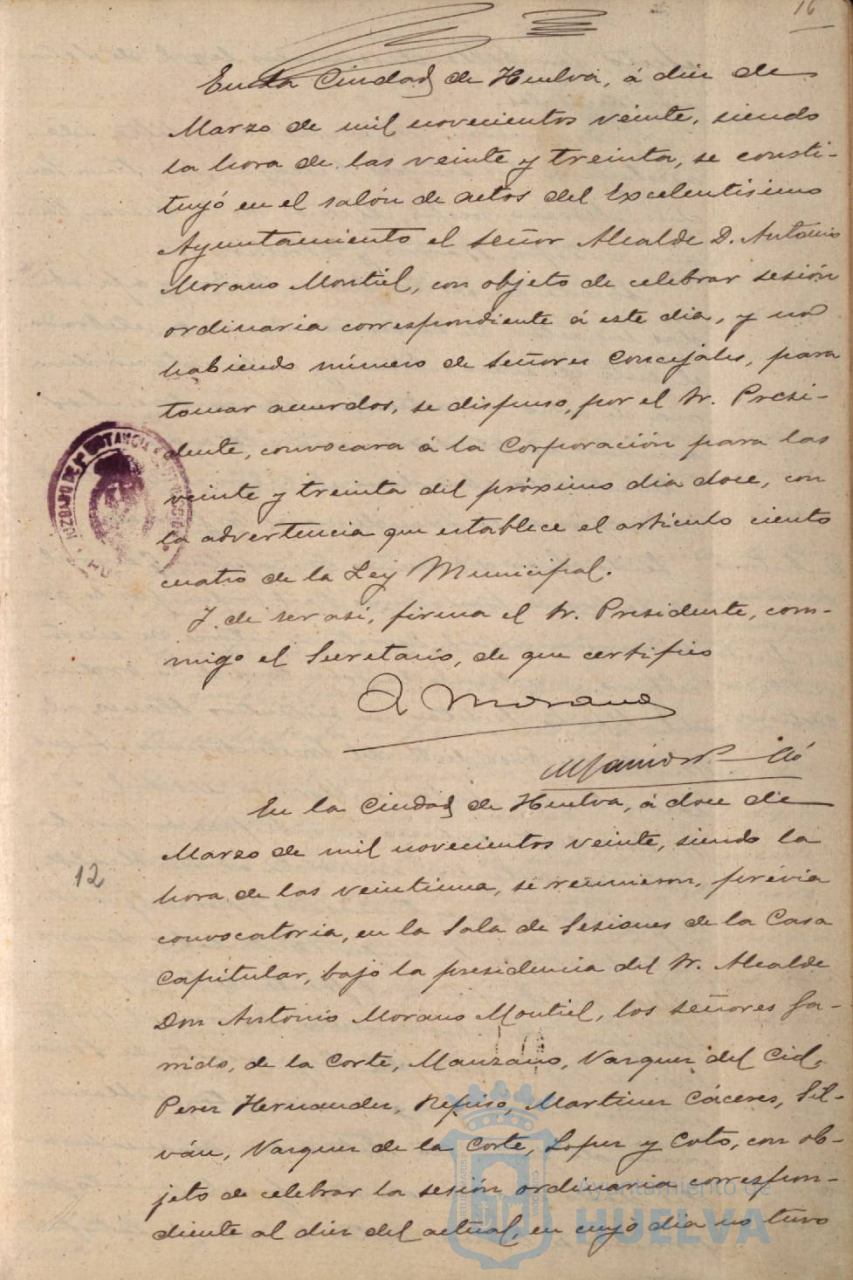 16
En la Ciudad de Huelva, á diez de
Marzo de mil novecientos veinte, siendo
la hora de las veinte y treinta, se consti-
tuyó en el salón de actos del Excelentisimo
Ayuntamiento el señor Alcalde D. Antonio
Morano Montiel, con objeto de celebrar sesión
ordinaria correspondiente á este dia, y no
habiendo número de señores Concejales, para
tomar acuerdos, se dispuso, por el Sr. Presi-
dente, convocara á la Corporación para las
veinte y treinta del próximo dia doce, con
la advertencia que establece el articulo ciento
cuatro de la Ley Municipal.
Y de ser asi, firma el Sr. Presidente, con-
migo el Secretario, de que certifico
A Morano
JUZGADO DE 1ª INSTANCIA
En la Ciudad de Huelva, á doce de
Marzo de mil novecientos veinte, siendo la
12
hora de las veintiuna, se reunieron, prévia
convocatoria, en la Sala de Sesiones de la Casa
Capitular, bajo la presidencia del Sr. Alcalde
Don Antonio Morano Montiel, los señores Ga-
rrido, de la Corte, Manzano, Vazquez del Cid,
Perez Hernandez, Repiso, Martinez Cáceres, Sil-
ván, Vazquez de la Corte, Lopez y Coto, con ob-
jeto de celebrar la sesión ordinaria correspon-
diente al diez del actual, en cuyo dia no tuvo
Ayuntamiento de
HUELVA